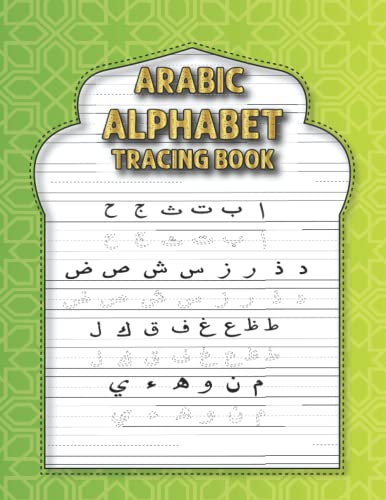 ARABIC
ALPHABET
TRACING BOOK
ا ب ت ث ج ح
ا ب ت ث ج ح
د ذ ر ز س ش ص ض
د ذ ر ز س ش ص ض
ط ظ ع غ ف ق ك ل
ط ظ ع غ ف ق ك ل
م ن و ه ء ي
م ن و ه ء ي